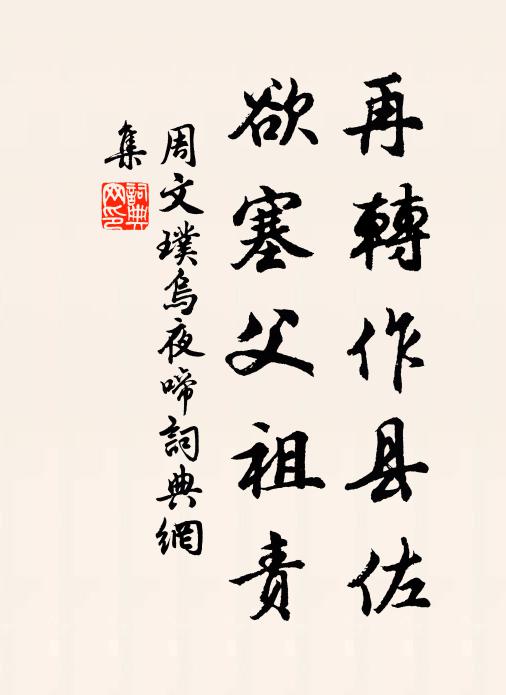 再轉作县佐
欲塞父祖責
周文璞烏夜啼詞典網
集
詞典网印